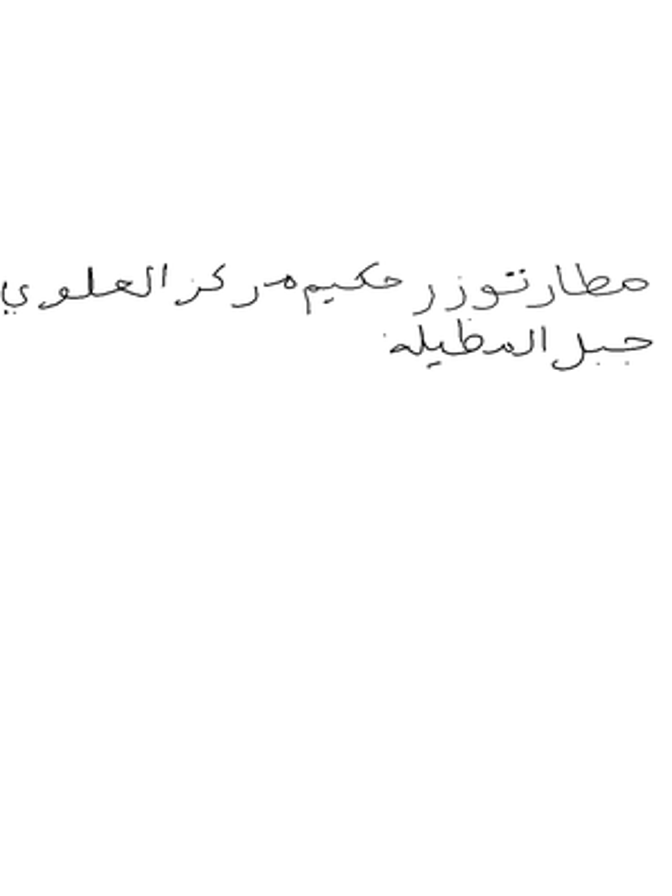 مطار توزر حكيم مركز العلوي
جبل المظيلة